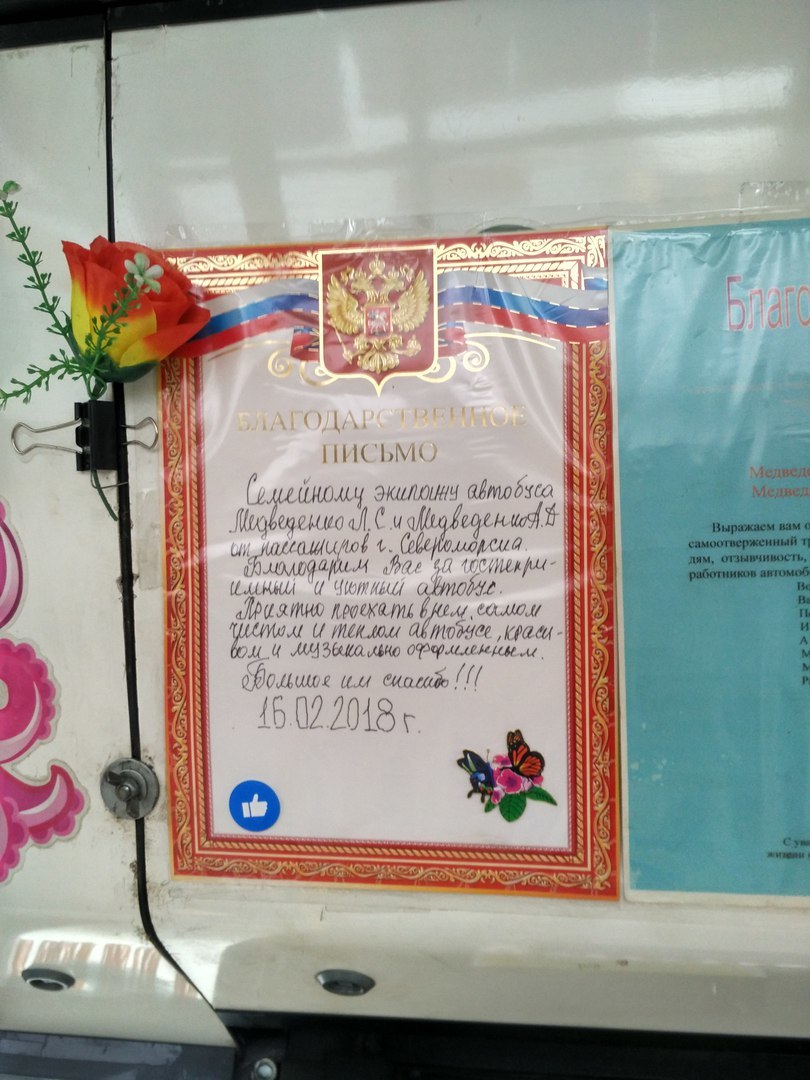 БЛАГОДАРСТВЕННОЕ
ПИСЬМО
Семейному экипажу автобуса
Медведенко Л.С. и Медведенко А.В
от пассажиров г. Североморска.
Благодарим Вас за гостепри-
имный и уютный автобус.
Приятно проехать в нем, самом
чистом и теплом автобусе, краси-
вом и музыкально оформленным.
Большое им спасибо!!!
16.02.2018 г.
Благо
Медведе
Медвед
Выражаем вам о
самоотверженный тр
дям, отзывчивость,
работников автомоб
Во
Ва
По
И
А
М
М
Р
С ува
жизни